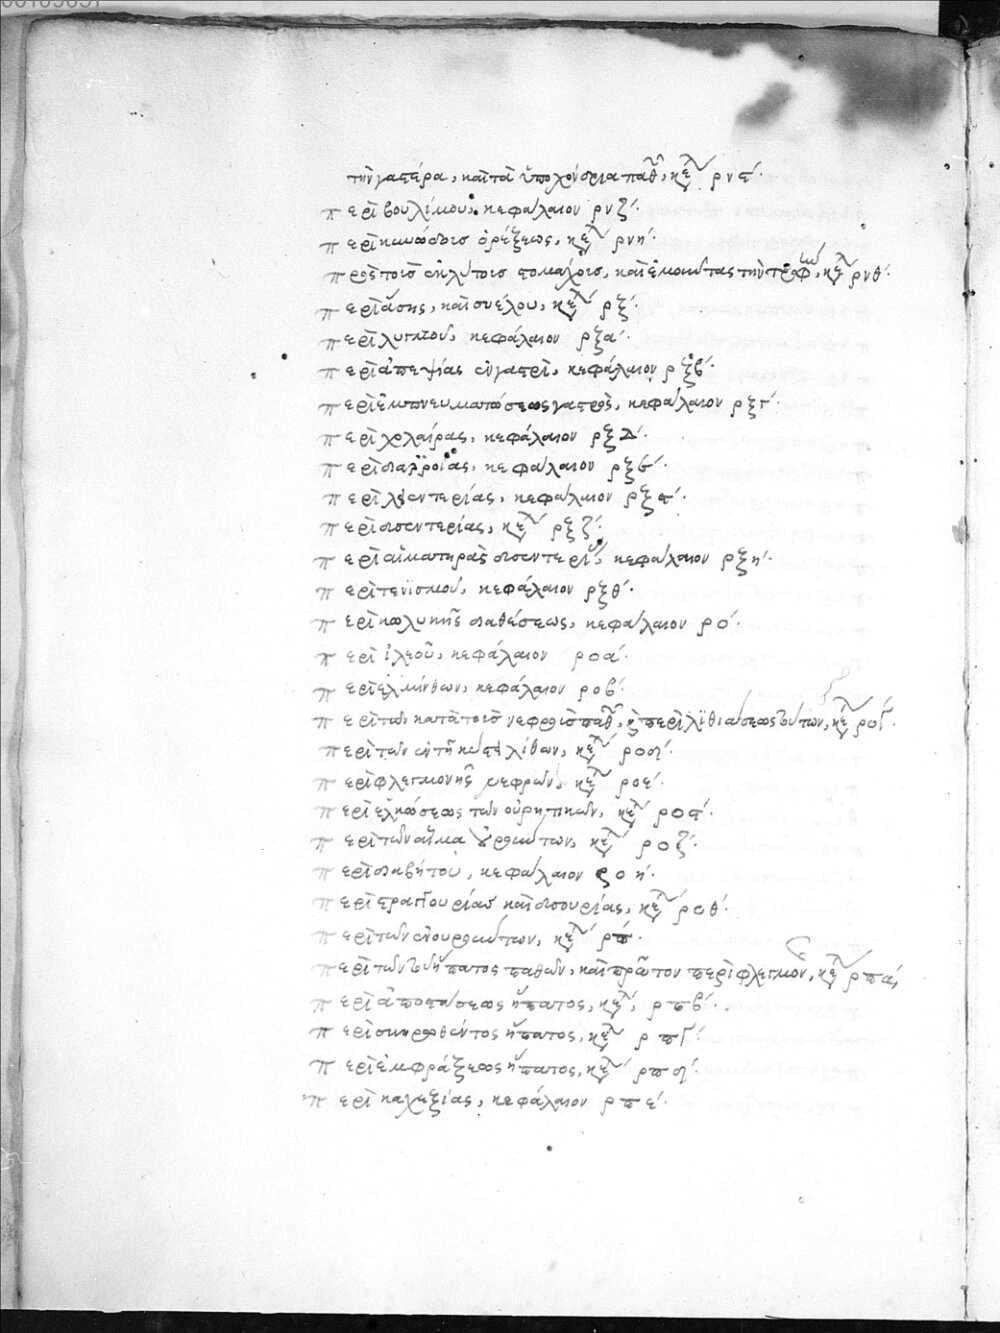 τὴν γαστέρα, καὶ τὰ ὑποχόνδρια παθῶν, κεφ ρνϛ΄.
περὶ βουλίμου, κεφάλαιον ρνζ΄.
περὶ κυνώδους ὀρέξεως, κεφ ρνη΄.
πρὸς τοὺς ἐκλύτους στομάχους, καὶ ἐμοῦντας τὴν τροφὴν, κεφ ρνθ΄.
περὶ ἄσης, καὶ σιέλου, κεφ ρξ΄.
περὶ λυγμοῦ, κεφάλαιον ρξα΄.
περὶ ἀπεψίας ἐν γαστρὶ, κεφάλαιον ρξβ΄.
περὶ ἐμπνευματώσεως γαστρὸς, κεφάλαιον ρξγ΄.
περὶ χολαίρας, κεφάλαιον ρξδ΄.
περὶ διαρροίας, κεφάλαιον ρξε΄.
περὶ λειεντερίας, κεφάλαιον ρξϛ΄.
περὶ δισεντερίας, κεφ ρξζ΄.
περὶ αἱματηρᾶς δισεντερίας, κεφάλαιον ρξη΄.
περὶ τεινεσμοῦ, κεφάλαιον ρξθ΄.
περὶ κωλικῆς διαθέσεως, κεφάλαιον ρο΄.
περὶ ἰλεοῦ, κεφάλαιον ροα΄.
περὶ ἑλμίνθων, κεφάλαιον ροβ΄
περὶ τῶν κατὰ τοὺς νεφροὺς παθῶν, ἢ περὶ λιθιάσεως τούτων, κεφ ρογ΄.
περὶ τῶν ἐν τῇ κύστει λίθων, κεφ ροδ΄.
περὶ φλεγμονῆς νεφρῶν, κεφ ροε΄.
περὶ ἑλκώσεως τῶν οὐρητικῶν, κεφ ροϛ΄.
περὶ τῶν αἷμα οὐρούντων, κεφ ροζ΄.
περὶ διαβήτου, κεφάλαιον ροη΄.
περὶ στραγγουρίας καὶ δισουρίας, κεφ ροθ΄.
περὶ τῶν ἐνουρούντων, κεφ ρπ΄.
περὶ τῶν τοῦ ἥπατος παθῶν, καὶ πρῶτον περὶ φλεγμονῆς, κεφ ρπα΄
περὶ ἀποστάσεως ἥπατος, κεφ, ρπβ΄.
περὶ σκιρρωθέντος ἥπατος, κεφ ρπγ΄.
περὶ ἐμφράξεως ἥπατος, κεφ ρπδ΄.
περὶ καχεξίας, κεφάλαιον ρπε΄.